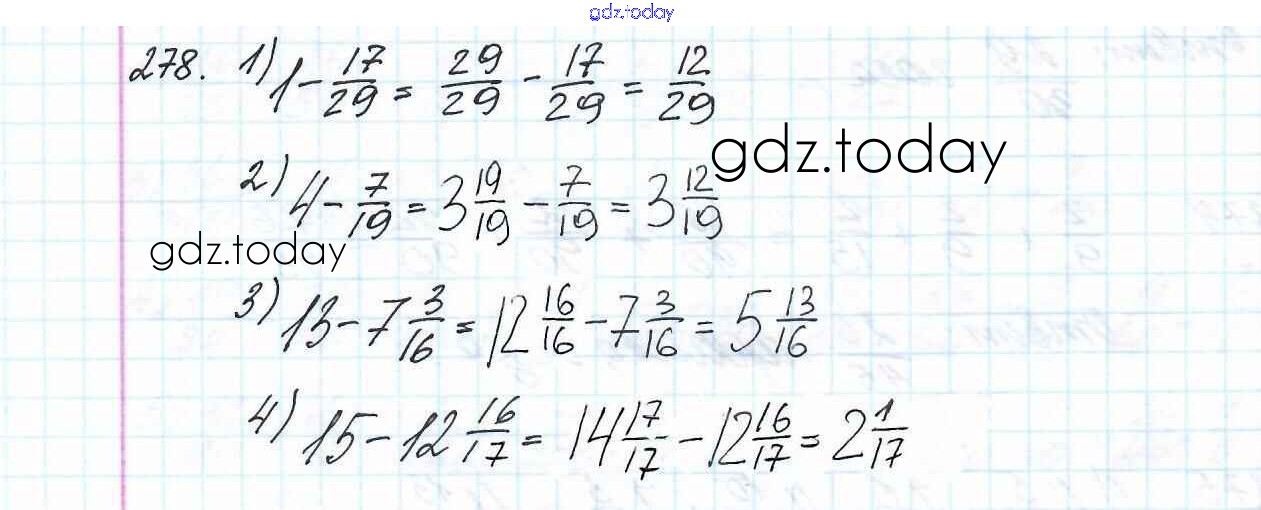 gdz.today
278. 1) 1 - 17/29 = 29/29 - 17/29 = 12/29
gdz.today
2) 4 - 7/19 = 3 19/19 - 7/19 = 3 12/19
gdz.today
3) 13 - 7 3/16 = 12 16/16 - 7 3/16 = 5 13/16
4) 15 - 12 16/17 = 14 17/17 - 12 16/17 = 2 1/17